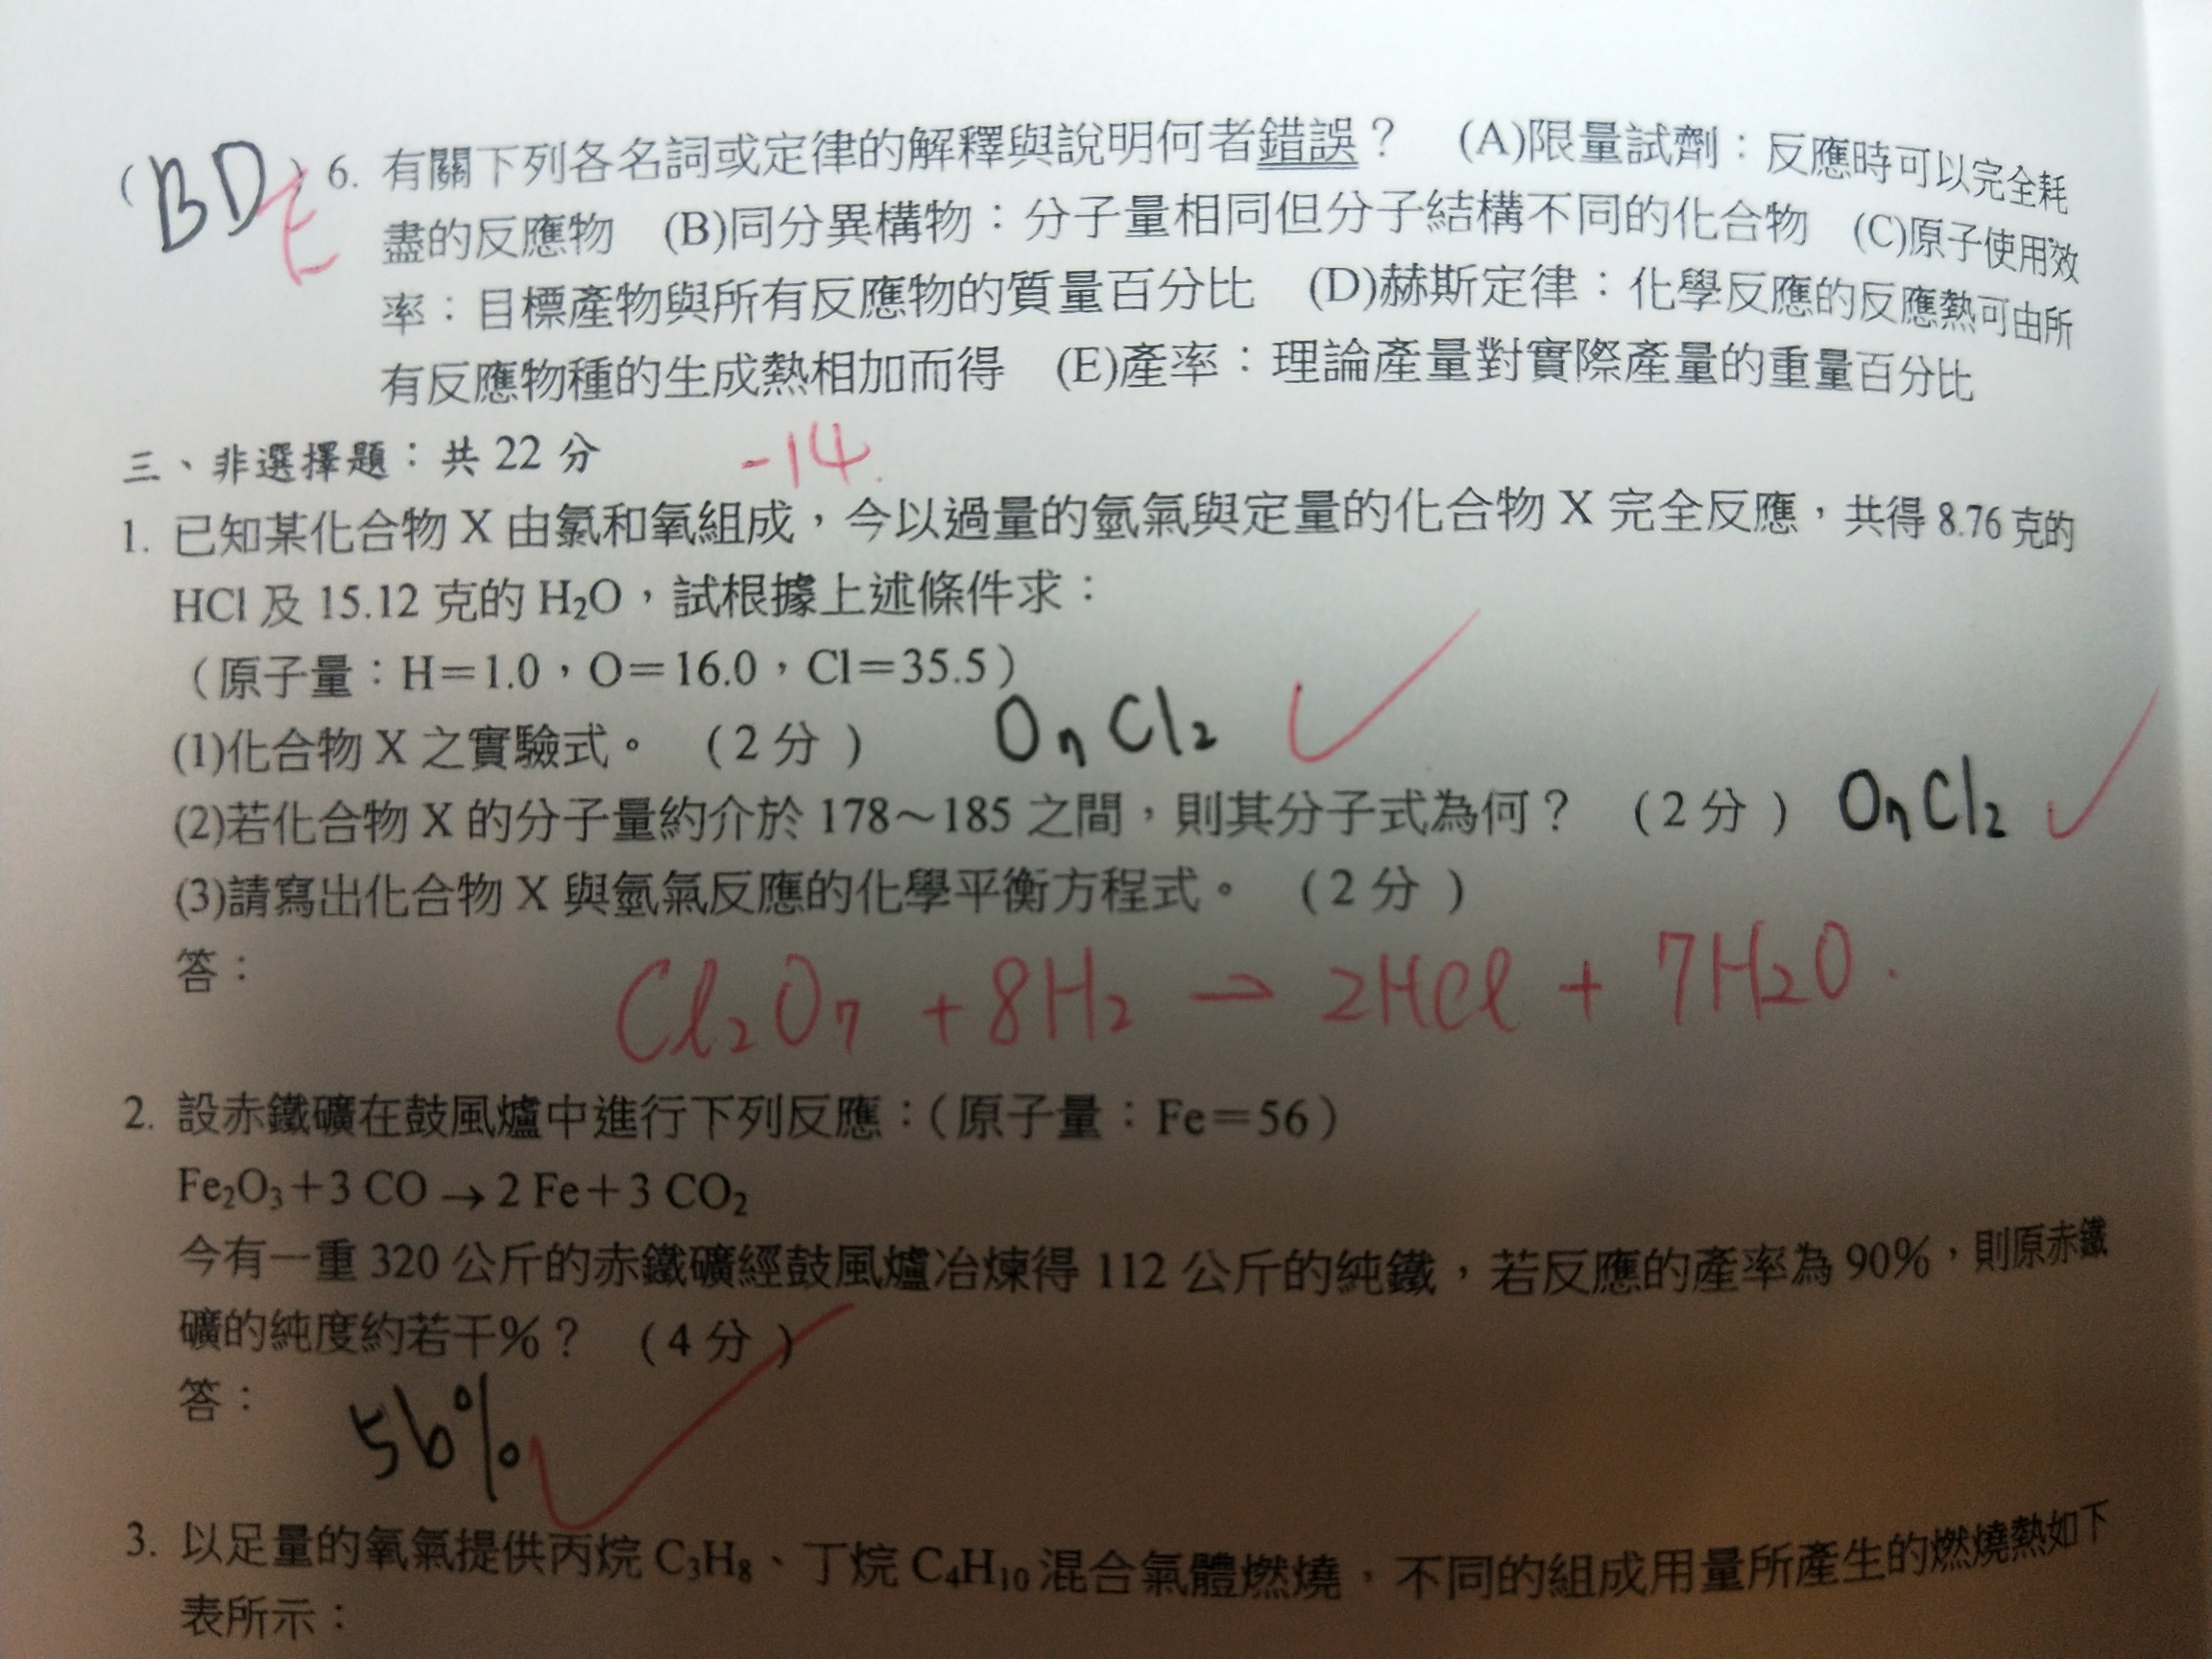 (BD E) 6. 有關下列各名詞或定律的解釋與說明何者錯誤？ (A)限量試劑：反應時可以完全耗
盡的反應物 (B)同分異構物：分子量相同但分子結構不同的化合物 (C)原子使用效
率：目標產物與所有反應物的質量百分比 (D)赫斯定律：化學反應的反應熱可由所
有反應物種的生成熱相加而得 (E)產率：理論產量對實際產量的重量百分比
三、非選擇題：共 22 分 -14.
1. 已知某化合物 X 由氯和氧組成，今以過量的氫氣與定量的化合物 X 完全反應，共得 8.76 克的
HCl 及 15.12 克的 H₂O，試根據上述條件求：
（原子量：H＝1.0，O＝16.0，Cl＝35.5）
(1)化合物 X 之實驗式。 （2 分） O₇Cl₂ ✓
(2)若化合物 X 的分子量約介於 178～185 之間，則其分子式為何？ （2 分） O₇Cl₂ ✓
(3)請寫出化合物 X 與氫氣反應的化學平衡方程式。 （2 分）
答：
Cl₂O₇ + 8H₂ → 2HCl + 7H₂O.
2. 設赤鐵礦在鼓風爐中進行下列反應：（原子量：Fe＝56）
Fe₂O₃＋3 CO → 2 Fe＋3 CO₂
今有一重 320 公斤的赤鐵礦經鼓風爐冶煉得 112 公斤的純鐵，若反應的產率為 90%，則原赤鐵
礦的純度約若干%？ （4 分）
答： 56% ✓
3. 以足量的氧氣提供丙烷 C₃H₈、丁烷 C₄H₁₀ 混合氣體燃燒，不同的組成用量所產生的燃燒熱如下
表所示：